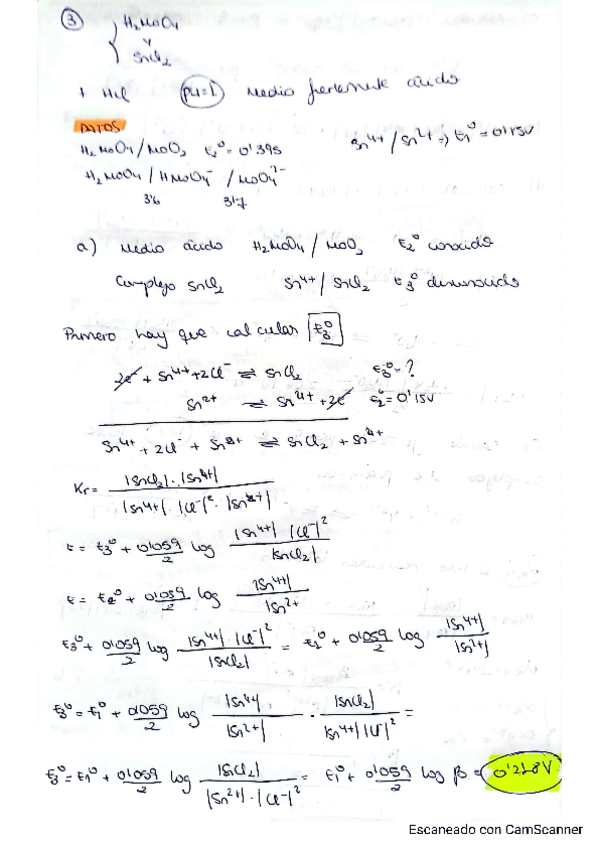 ③ { H₂MoO₄
y
SnCl₂
+ HCl pH=1 Medio fuertemente ácido
DATOS
H₂MoO₄/MoO₂ E₂⁰=0'395 Sn⁴⁺/Sn²⁺ => E₁⁰=0'15V
H₂MoO₄ / HMoO₄⁻ / MoO₄²⁻
3'6
a) Medio ácido H₂MoO₄/MoO₂ E₂⁰ conocido
Complejo SnCl₂ Sn⁴⁺/SnCl₂ E₃⁰ desconocido
Primero hay que calcular E₃⁰
2e⁻ + Sn⁴⁺ + 2Cl⁻ ⇌ SnCl₂ E₃⁰=?
Sn²⁺ ⇌ Sn⁴⁺ + 2e⁻ =0'15V
Sn⁴⁺ + 2Cl⁻ + Sn²⁺ ⇌ SnCl₂ + Sn⁴⁺
Kr = |SnCl₂|·|Sn⁴⁺| / |Sn⁴⁺|·|Cl⁻|²·|Sn²⁺|
E = E₃⁰ + 0'059/2 log |Sn⁴⁺| |Cl⁻|² / |SnCl₂|
E = + 0'059/2 log |Sn⁴⁺| / |Sn²⁺
E₃⁰ + 0'059/2 log |Sn⁴⁺|·|Cl⁻|² / |SnCl₂| = E₁⁰ + 0'059/2 log |Sn⁴⁺| / |Sn²⁺|
E₃⁰ = E₁⁰ + 0'059/2 log |Sn⁴⁺| / |Sn²⁺| · |SnCl₂| / |Sn⁴⁺| |Cl⁻|² =
E₃⁰ = E₁⁰ + 0'059/2 log |SnCl₂| / |Sn²⁺|·|Cl⁻|² = E₁⁰ + 0'059/2 log β = 0'218V
Escaneado con CamScanner